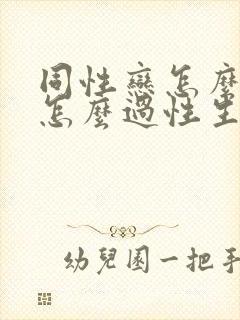 同性戀怎麼
怎麼過性生
幼兒園一把手